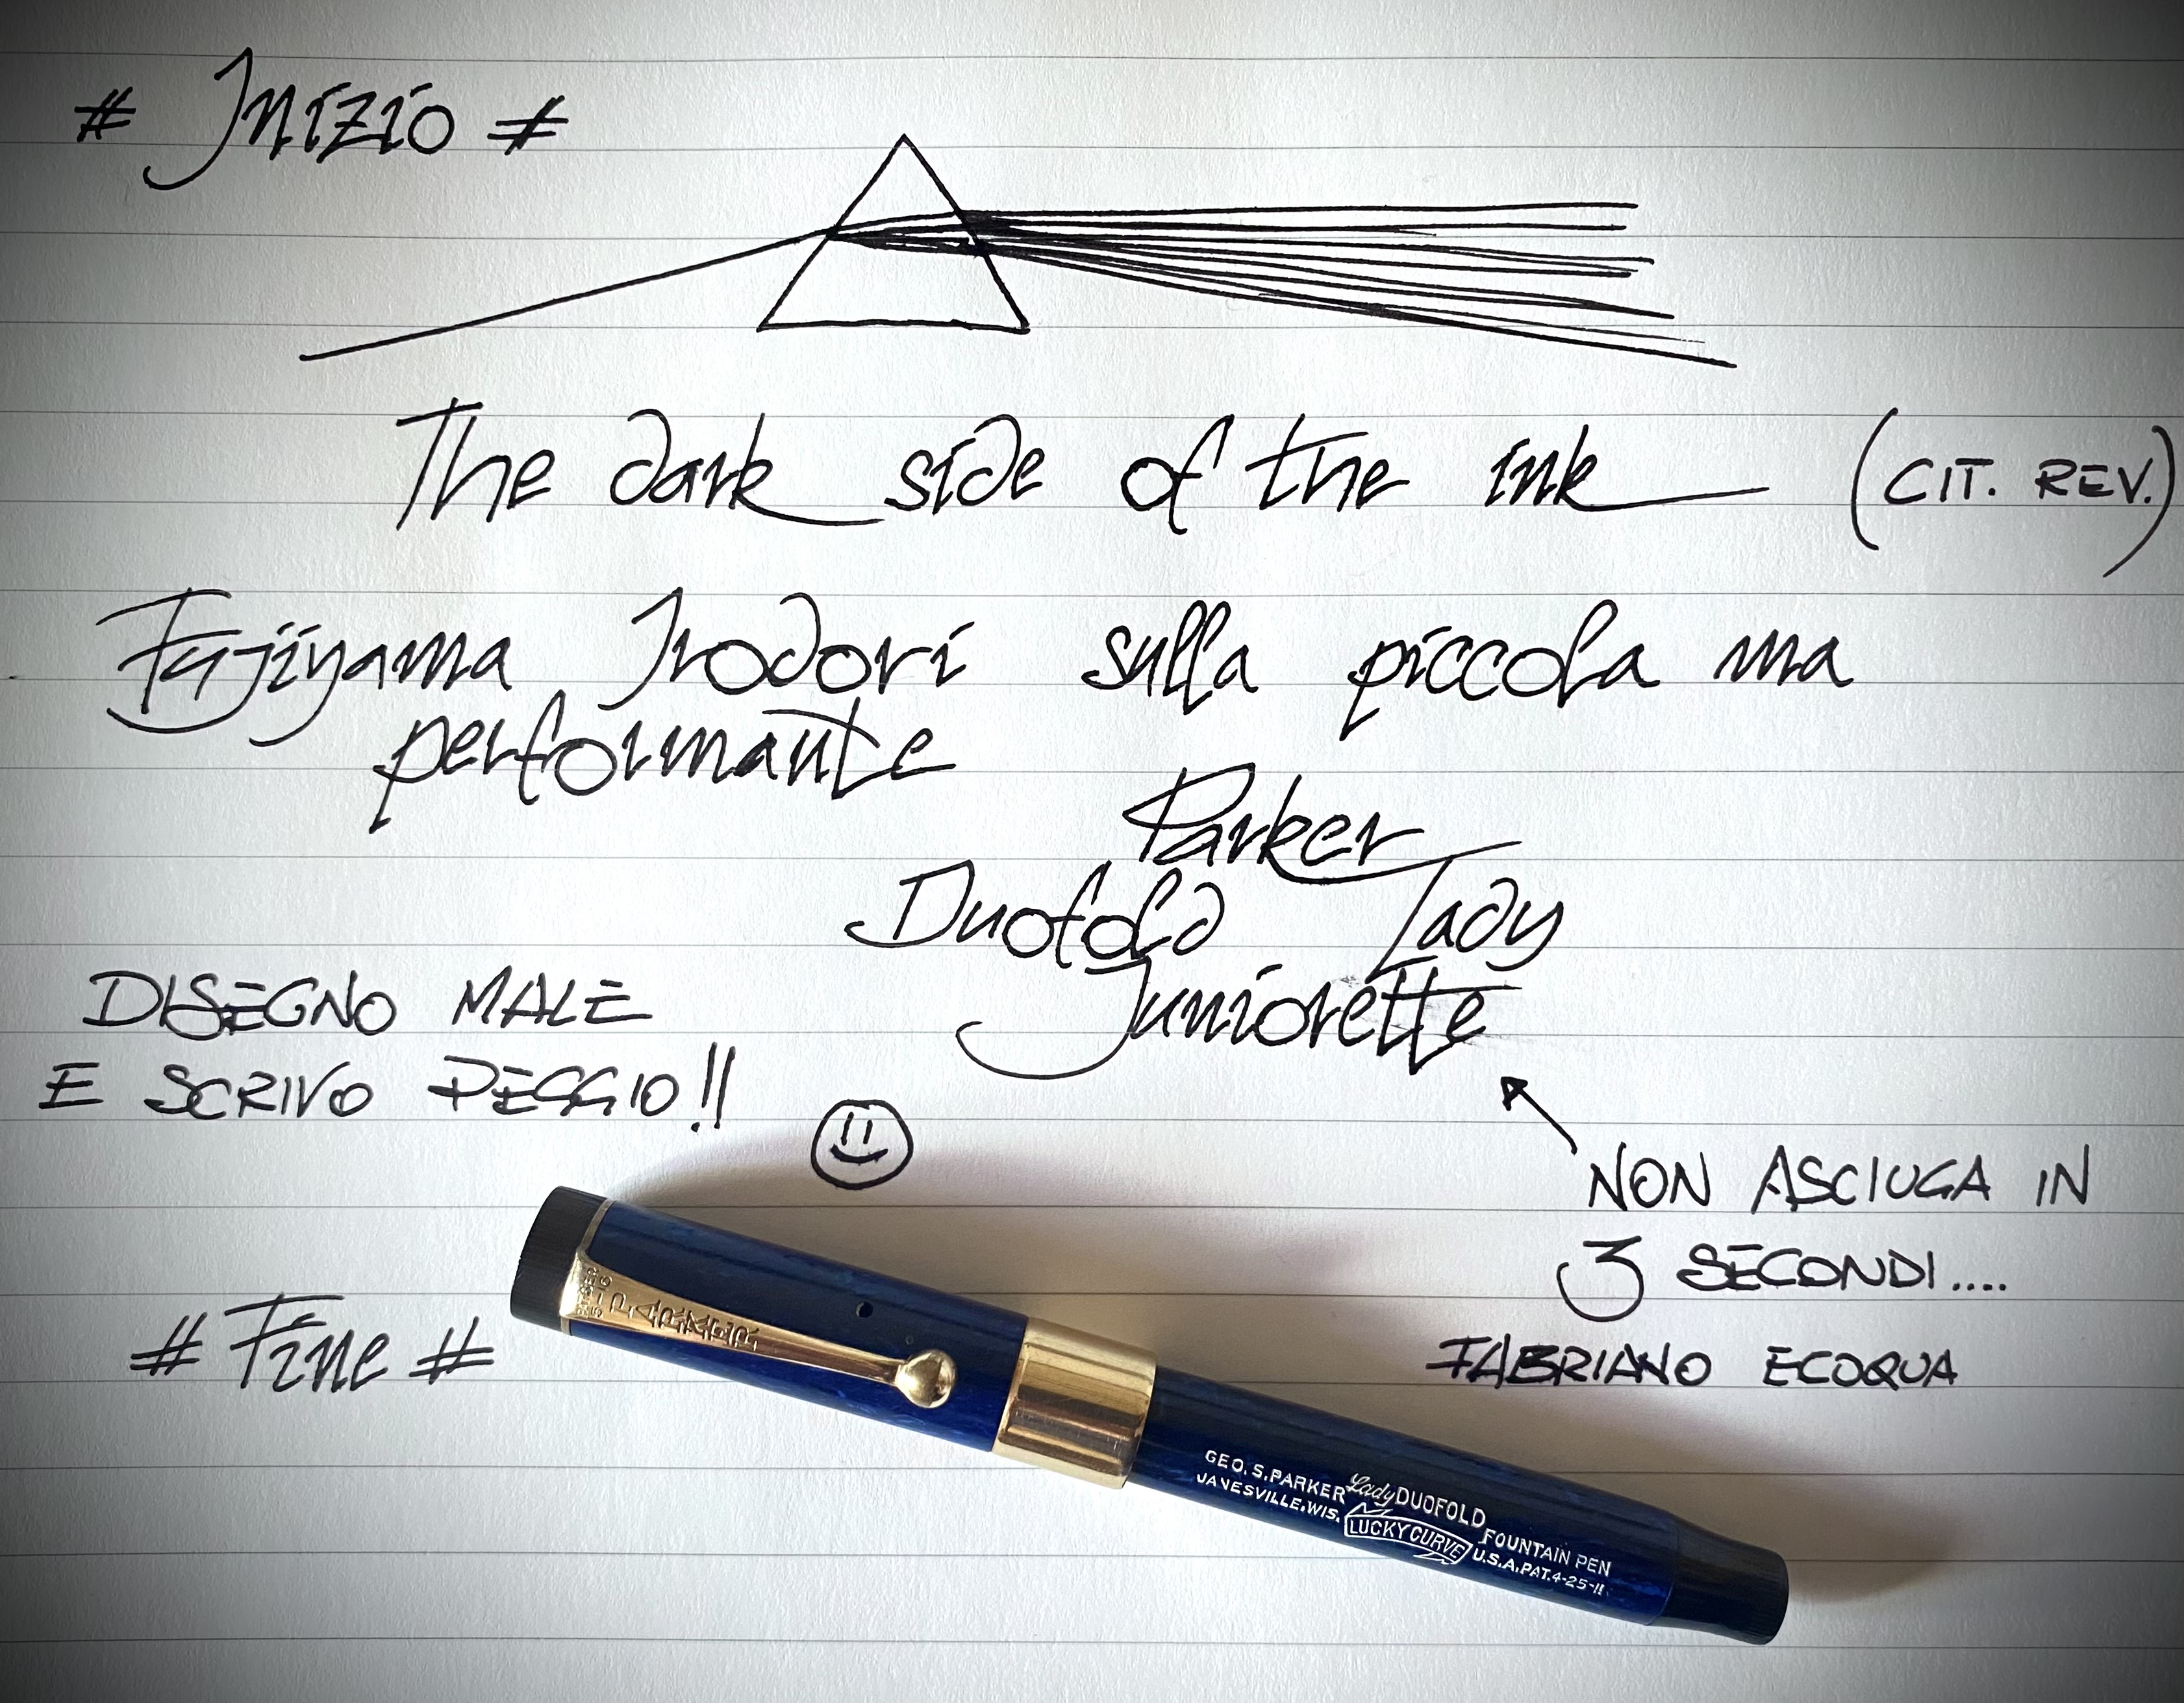 # Inizio #
The dark side of the ink (CIT. REV.)
Fujiyama Irodori sulla piccola ma
performante
Parker
Duofold Lady
Juniorette
DISEGNO MALE
E SCRIVO PEGGIO!!
NON ASCIUGA IN
3 SECONDI....
FABRIANO ECOQUA
# Fine #
PARKER
GEO. S. PARKER Lady DUOFOLD FOUNTAIN PEN
JANESVILLE. WIS. LUCKY CURVE U.S.A. PAT. 4-25-11